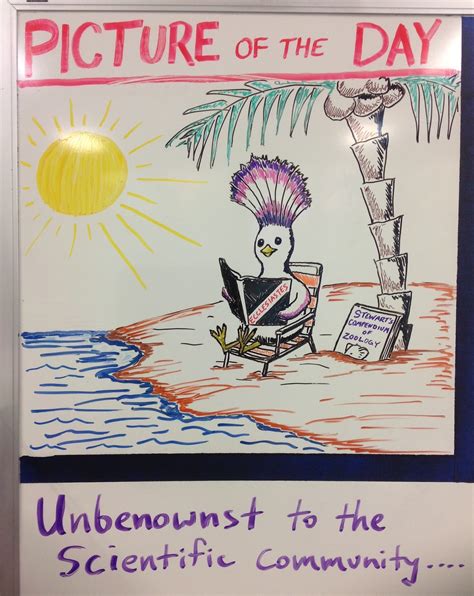 PICTURE OF THE DAY
ECCLESIASTES
STEWART'S
COMPENDIUM
OF
ZOOLOGY
Unbenownst to the
Scientific Community....